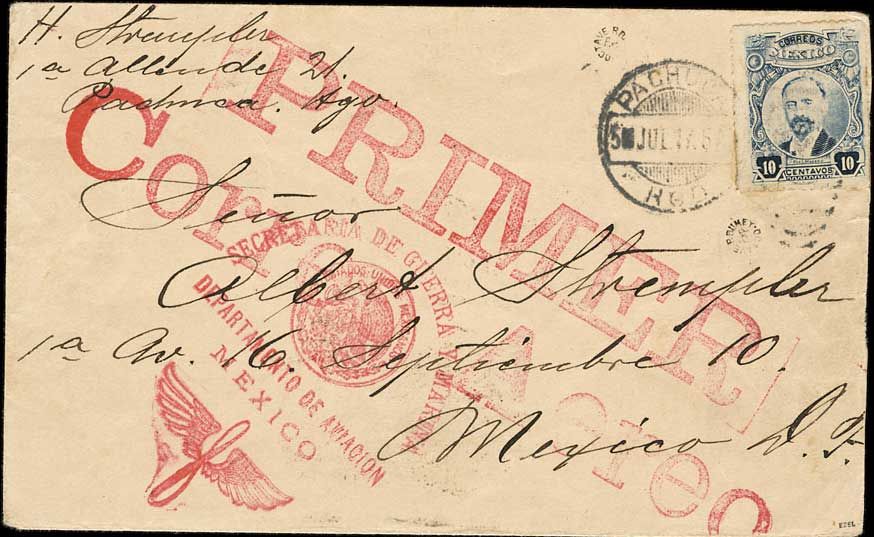 H. Strempler
1a Allende 21.
Pachuca. Hgo.
PRIMER
Correo Aereo
CORREOS
MEXICO
10 CENTAVOS 10
PACHUCA
JUL 17
HGO.
Señor
Albert Strempler
1a Av. 16 Septiembre 10.
Mexico D. F.
SECRETARIA DE GUERRA Y MARINA
DEPARTAMENTO DE AVIACION
MEXICO